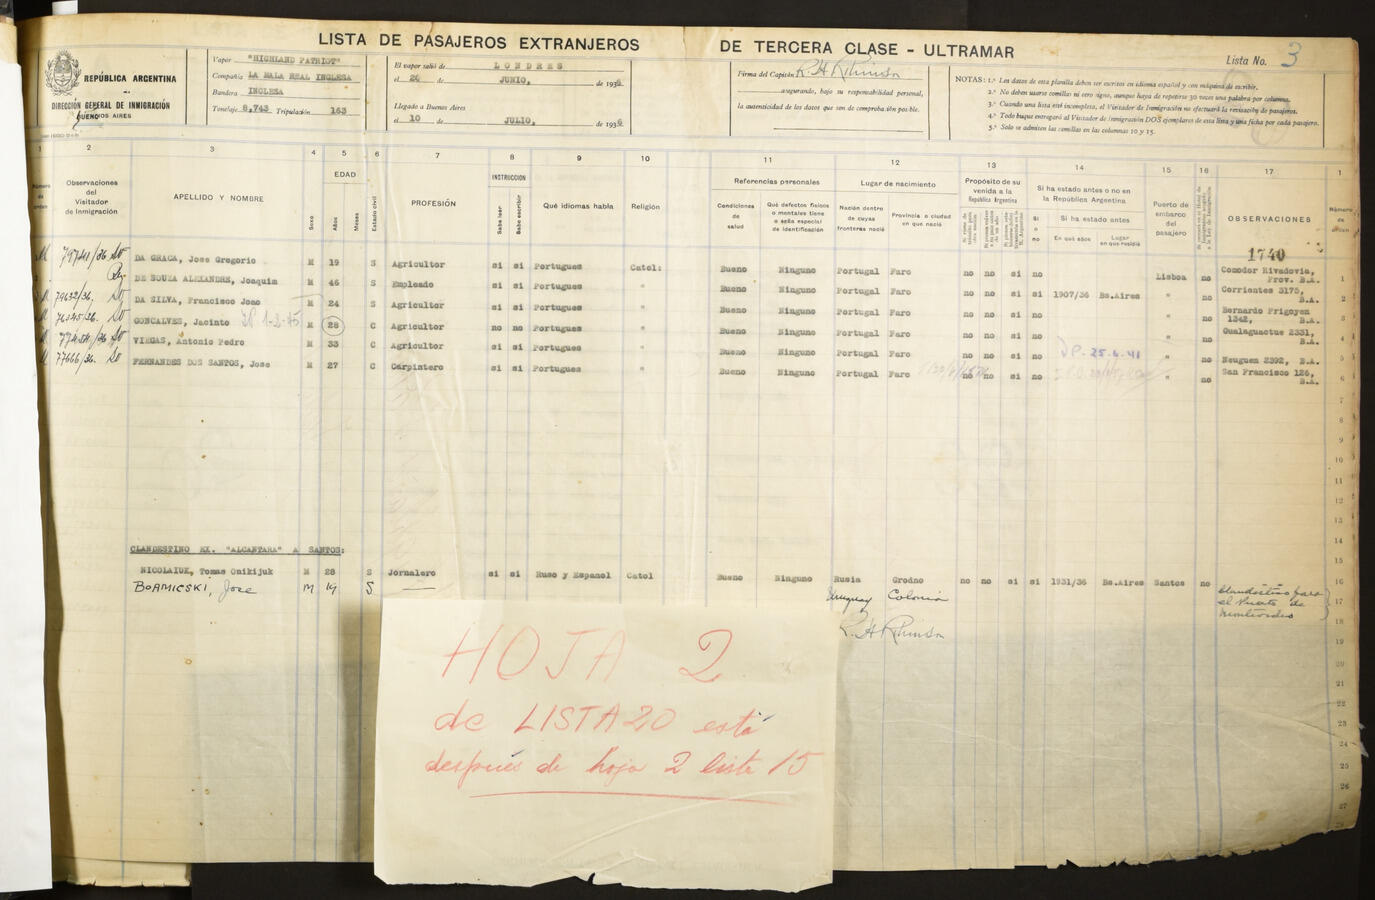 LISTA DE PASAJEROS EXTRANJEROS DE TERCERA CLASE - ULTRAMAR
Lista No. 3
REPÚBLICA ARGENTINA
DIRECCIÓN GENERAL DE INMIGRACIÓN
BUENOS AIRES
Vapor "HIGHLAND PATRIOT"
Compañía LA MALA REAL INGLESA
Bandera INGLESA
Tonelaje 8,743 Tripulación 163
El vapor salió de LONDRES
el 20 de JUNIO, de 1936
Llegado a Buenos Aires
el 10 de JULIO, de 1936
Firma del Capitán
asegurando, bajo su responsabilidad personal,
la autenticidad de los datos que son de comprobación posible.
NOTAS: 1.ª Los datos de esta planilla deben ser escritos en idioma español y con máquina de escribir.
2.ª No deben usarse comillas ni otro signo, aunque haya de repetirse 30 veces una palabra por columna.
3.ª Cuando una lista esté incompleta, el Visitador de Inmigración no efectuará la revisación de pasajeros.
4.ª Todo buque entregará al Visitador de Inmigración DOS ejemplares de esta lista y una ficha por cada pasajero.
5.ª Solo se admiten las comillas en las columnas 10 y 15.
1 2 3 4 5 6 7 8 9 10 11 12 13 14 15 16 17 1
Número de orden
Observaciones del Visitador de Inmigración
APELLIDO Y NOMBRE
Sexo
EDAD
Años
Meses
Estado civil
PROFESIÓN
INSTRUCCION
Sabe leer
Sabe escribir
Qué idiomas habla
Religión
Referencias personales
Condiciones de salud
Qué defectos físicos o mentales tiene o seña especial de identificación
Lugar de nacimiento
Nación dentro de cuyas fronteras nació
Provincia o ciudad en que nació
Propósito de su venida a la República Argentina
Si ha estado antes o no en la República Argentina
si o no
Si ha estado antes
En qué años
Lugar en que residió
Puerto de embarco del pasajero
OBSERVACIONES
Número de orden
1740
DA GRACA, Jose Gregorio M 19 S Agricultor si si Portugues Catol: Bueno Ninguno Portugal Faro no no si no Lisboa no Comodor Rivadovia, Prov. B.A. 1
DE SOUZA ALEXANDRE, Joaquin M 46 S Empleado si si Portugues " Bueno Ninguno Portugal Faro no no si si 1907/36 Bs.Aires " no Corrientes 3175, B.A. 2
79632/36. DA SILVA, Francisco Joao M 24 S Agricultor si si Portugues " Bueno Ninguno Portugal Faro no no si no " no Bernardo Frigoyen 1342, B.A. 3
GONCALVES, Jacinto M 28 C Agricultor no no Portugues " Bueno Ninguno Portugal Faro no no si no " no Gualaguactue 2331, B.A. 4
VIEGAS, Antonio Pedro M 33 C Agricultor si si Portugues " Bueno Ninguno Portugal Faro no no si no 25.4.41 " no Neuguen 2392, B.A. 5
77666/36. FERNANDES DOS SANTOS, Jose M 27 C Carpintero si si Portugues " Bueno Ninguno Portugal Faro no no si no " no San Francisco 126, B.A. 6
7
8
9
10
11
12
13
14
CLANDESTINO EX. "ALCANTARA" A SANTOS:
15
NICOLAIUK, Tomas Onikijuk M 28 S Jornalero si si Ruso y Espanol Catol Bueno Ninguno Rusia Grodno no no si si 1931/36 Bs.Aires Santos no 16
BORMICSKI, Jose M 19 S — Uruguay Colonia Clandestino para el Puerto de Montevideo 17
18
19
20
21
22
23
24
25
26
27
HOJA 2
de LISTA 20 está
después de hoja 2 lista 15